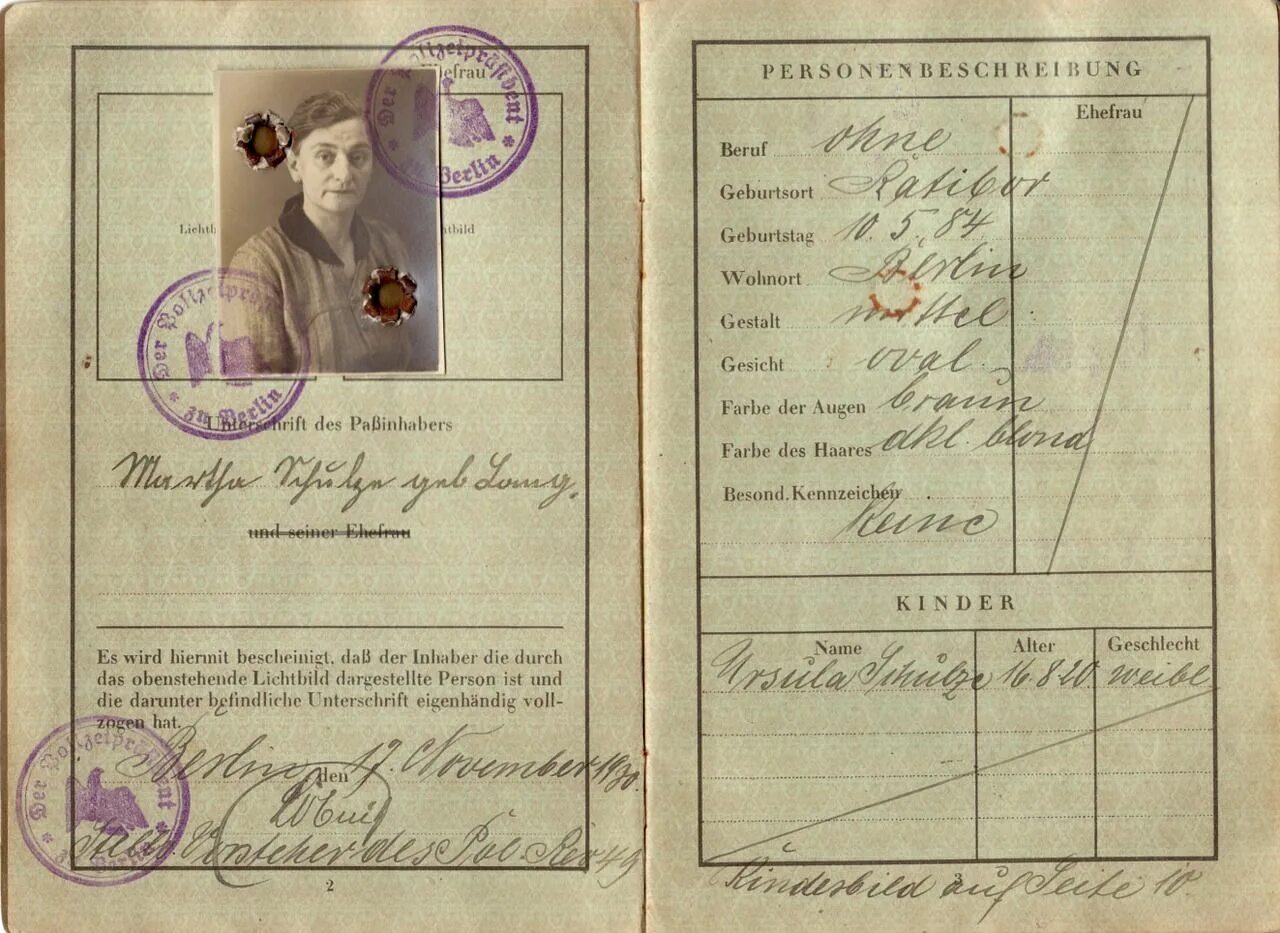 Ehefrau
Der Polizeipräsident
zu Berlin
Lichtb
htbild
Der Polizeipräsident
zu Berlin
Unterschrift des Paßinhabers
Martha Schulze geb Lang.
und seiner Ehefrau
Es wird hiermit bescheinigt, daß der Inhaber die durch
das obenstehende Lichtbild dargestellte Person ist und
die darunter befindliche Unterschrift eigenhändig voll-
zogen hat.
Der Polizeipräsident
zu Berlin
Berlin, den 17. November 1930.
Stellv. Vorsteher des Pol. Rev 49
2
PERSONENBESCHREIBUNG
Ehefrau
Beruf ohne
Geburtsort Ratibor
Geburtstag 10. 5. 84
Wohnort Berlin
Gestalt mittel
Gesicht oval
Farbe der Augen braun
Farbe des Haares dkl. blond
Besond. Kennzeichen
Keine
KINDER
Name Alter Geschlecht
Ursula Schulze 16.8.20 weibl
3
Kindesbild auf Seite 10.